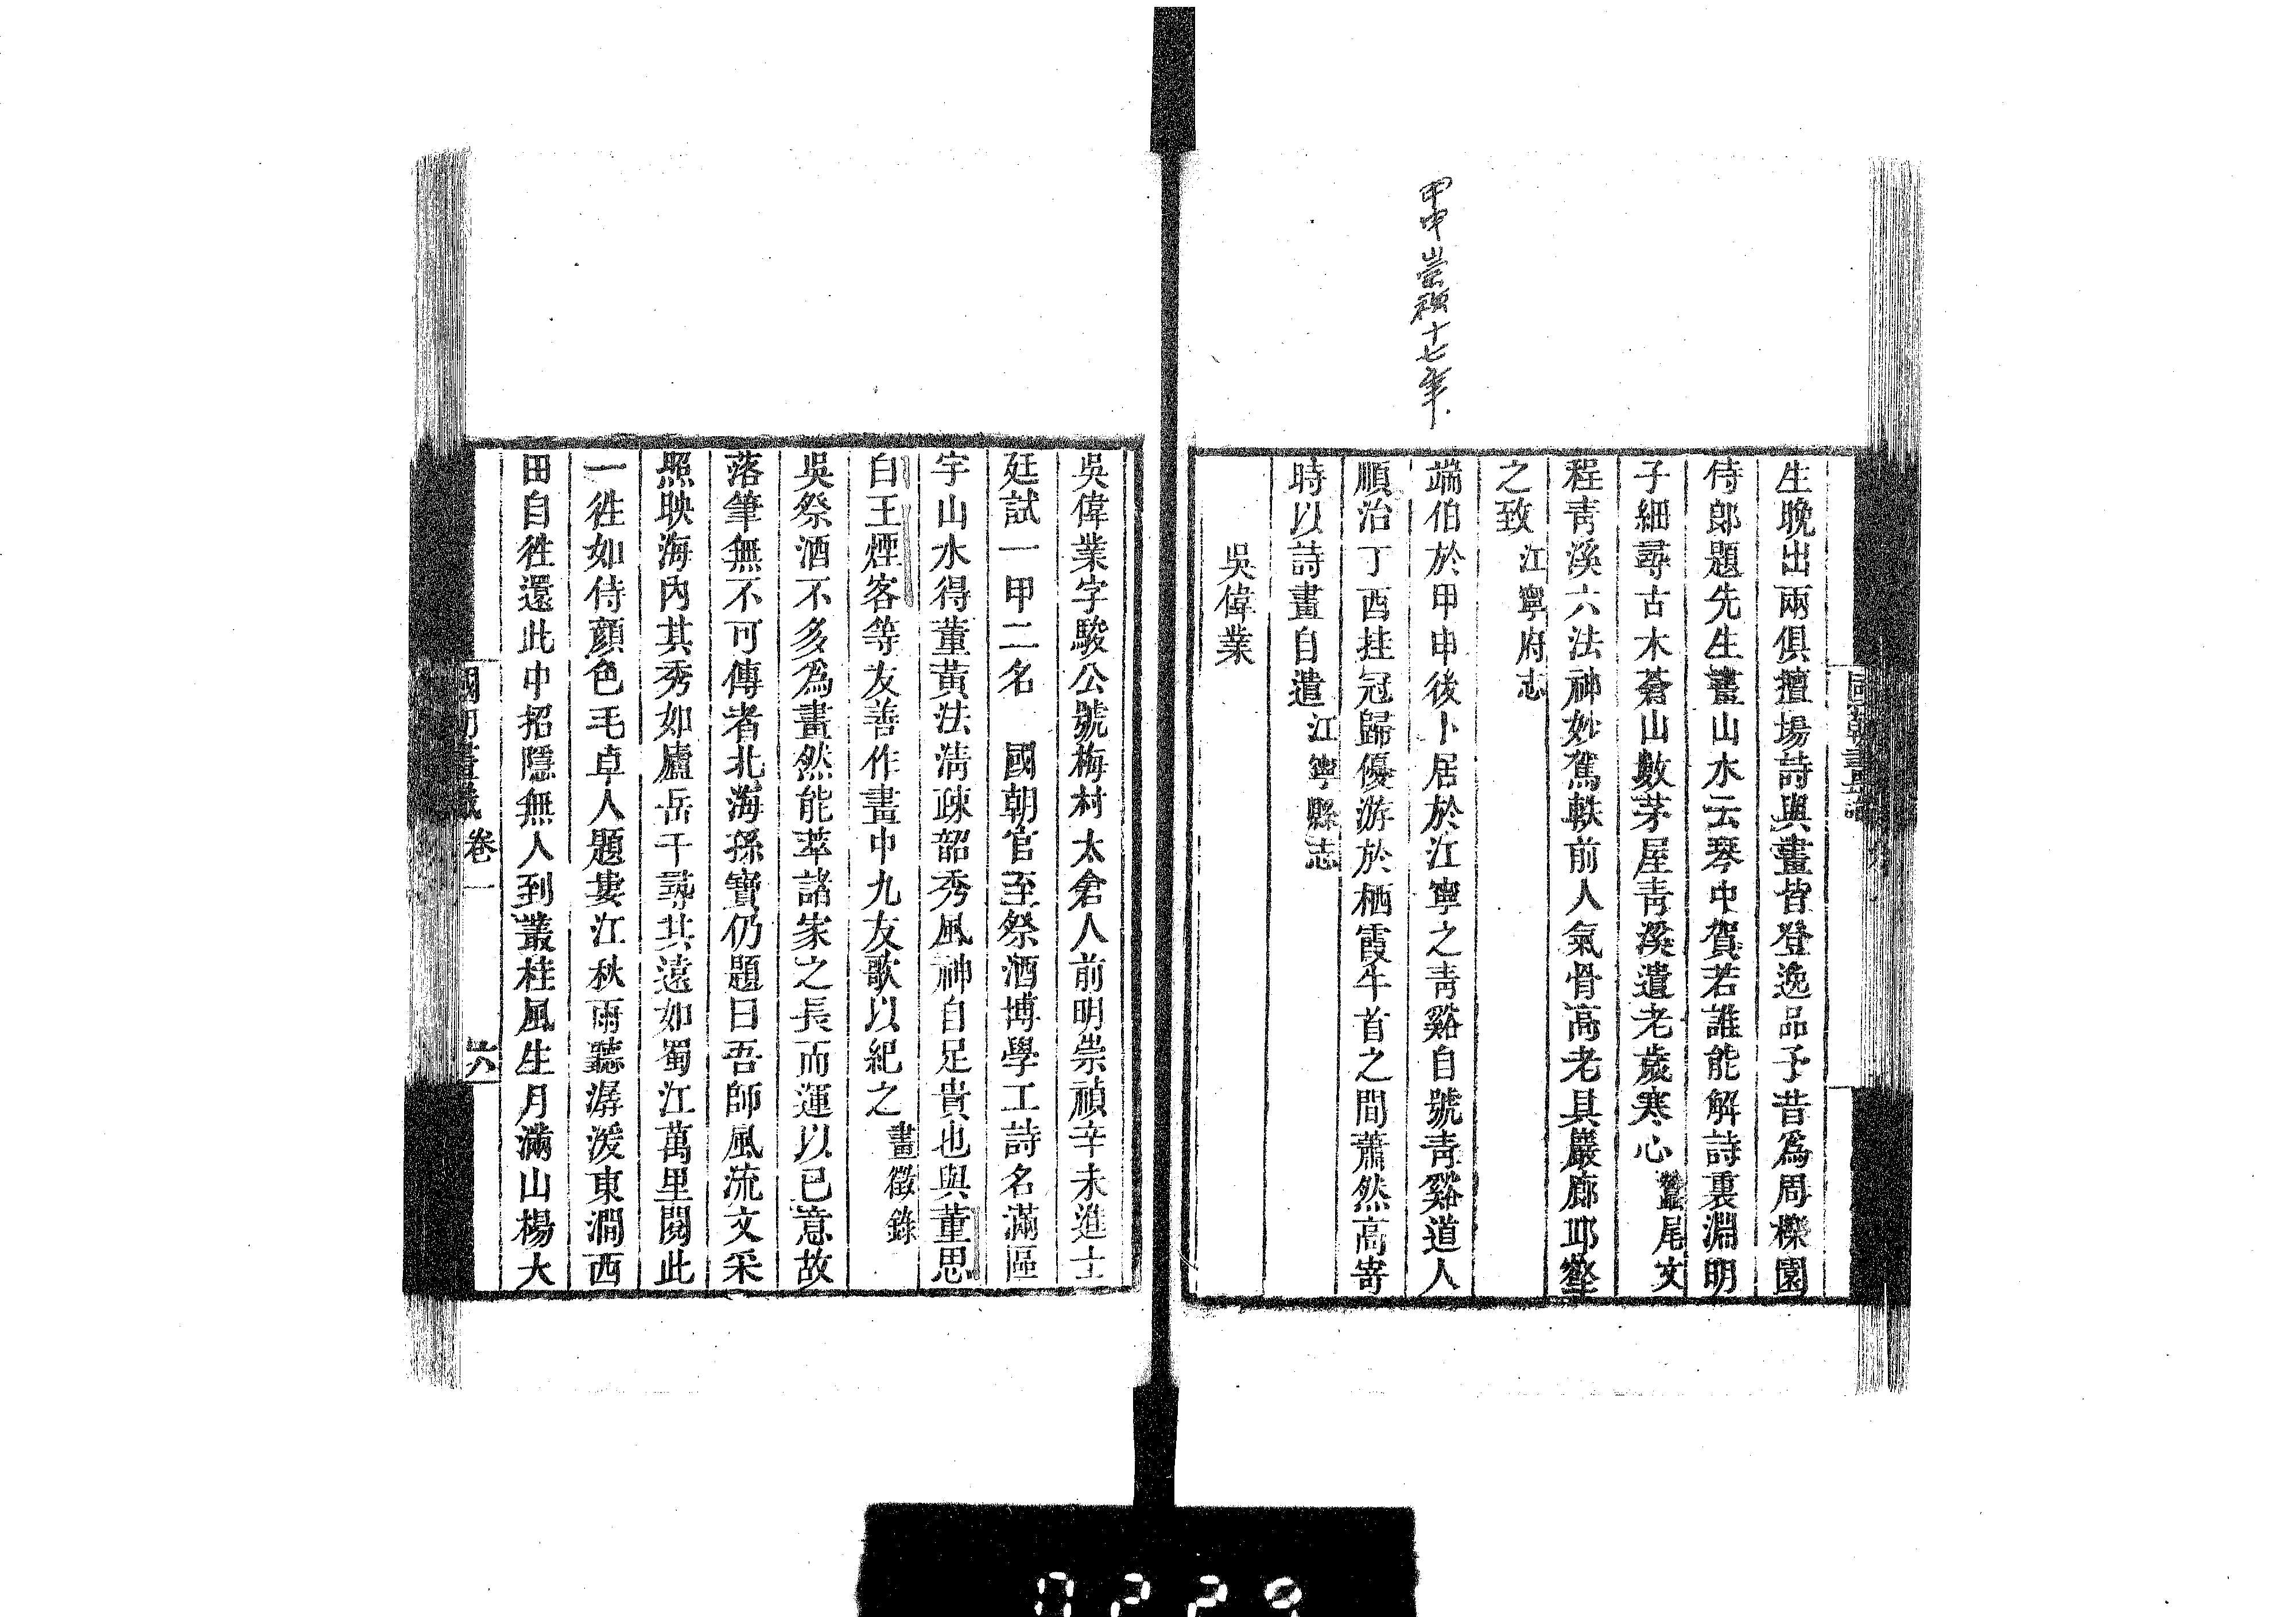 甲申崇禎十七年
生晚出兩俱擅場詩與畫皆登逸品予昔爲周櫟園
侍郎題先生畫山水云琴中賀若誰能解詩裏淵明
子細尋古木蒼山數茅屋青溪遺老歲寒心 蠶尾文
程青溪六法神妙駕軼前人氣骨高老具巖廊邱壑
之致 江寧府志
端伯於甲申後卜居於江寧之青谿自號青谿道人
順治丁酉挂冠歸優游於栖霞牛首之間蕭然高寄
時以詩畫自遣 江寧縣志
吳偉業
吳偉業字駿公號梅村太倉人前明崇禎辛未進士
廷試一甲二名 國朝官至祭酒博學工詩名滿區
宇山水得董黃法清疎韶秀風神自足貴也與董思
白王煙客等友善作畫中九友歌以紀之 畫徵錄
吳祭酒不多爲畫然能萃諸家之長而運以已意故
落筆無不可傳者北海孫寶仍題曰吾師風流文采
照映海內其秀如廬岳千尋其遠如蜀江萬里閱此
一徃如侍顏色毛卓人題婁江秋雨聽潺湲東澗西
田自徃還此中招隱無人到叢桂風生月滿山楊大
國朝畫識 卷一 六
0229